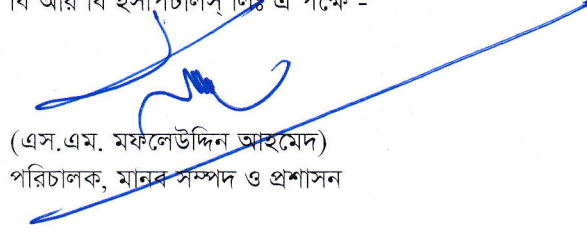 বি আর বি হসপিটালস্ লিঃ এ পক্ষে -
(এস.এম. মফলেউদ্দিন আহমেদ)
পরিচালক, মানব সম্পদ ও প্রশাসন